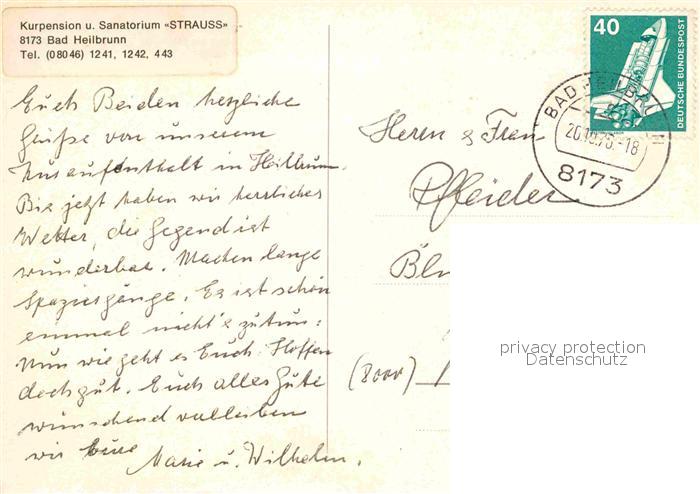 Kurpension u. Sanatorium «STRAUSS»
8173 Bad Heilbrunn
Tel. (08046) 1241, 1242, 443
Euch Beiden herzliche
Grüße von unserem
Kuraufenthalt in Heilbrunn.
Bis jetzt haben wir herrliches
Wetter, die Gegend ist
wunderbar. Machen lange
Spaziergänge. Es ist schön
einmal nicht's zutun:
Nun wie geht es Euch. Hoffen
doch gut. Euch alles Gute
wünschend verbleiben
wir Eure
Marie u. Wilhelm.
40
DEUTSCHE BUNDESPOST
BAD HEILBRUNN
20.10.76.-18
8173
Herrn & Frau
Pfleider
(8000)
privacy protection
Datenschutz